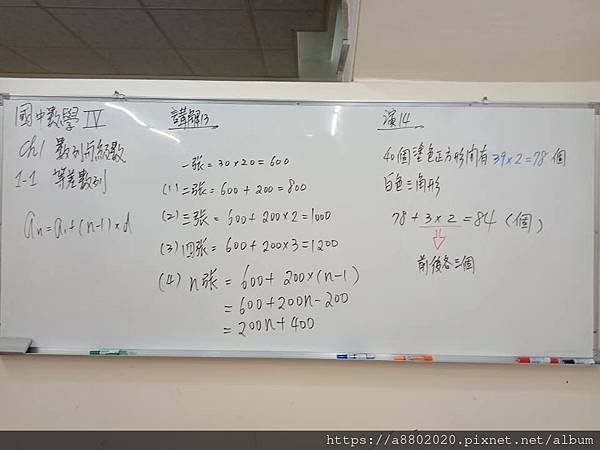 國中數學 IV
ch1 數列與級數
1-1 等差數列
aₙ=a₁+(n-1)×d
講解13
一張=30×20=600
(1)二張=600+200=800
(2)三張=600+200×2=1000
(3)四張=600+200×3=1200
(4) n張=600+200×(n-1)
=600+200n-200
=200n+400
演14
40個塗色正方形間有39×2=78個
白色三角形
78+3×2=84(個)
前後各三個
https://a8802020.pixnet.net/album